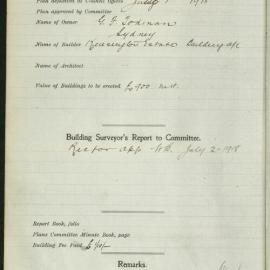 Plan deposited at Council Offices July 1 1918
Plan approved by Committee
Name of Owner G. F. Todman
Sydney
Name of Builder Kensington Estate Building
Name of Architect
Value of Buildings to be erected £900
Building Surveyor's Report to Committee.
Rec for app July 2-1918
Report Book, folio
Plans Committee Minute Book, page
Building Fee Paid
Remarks.